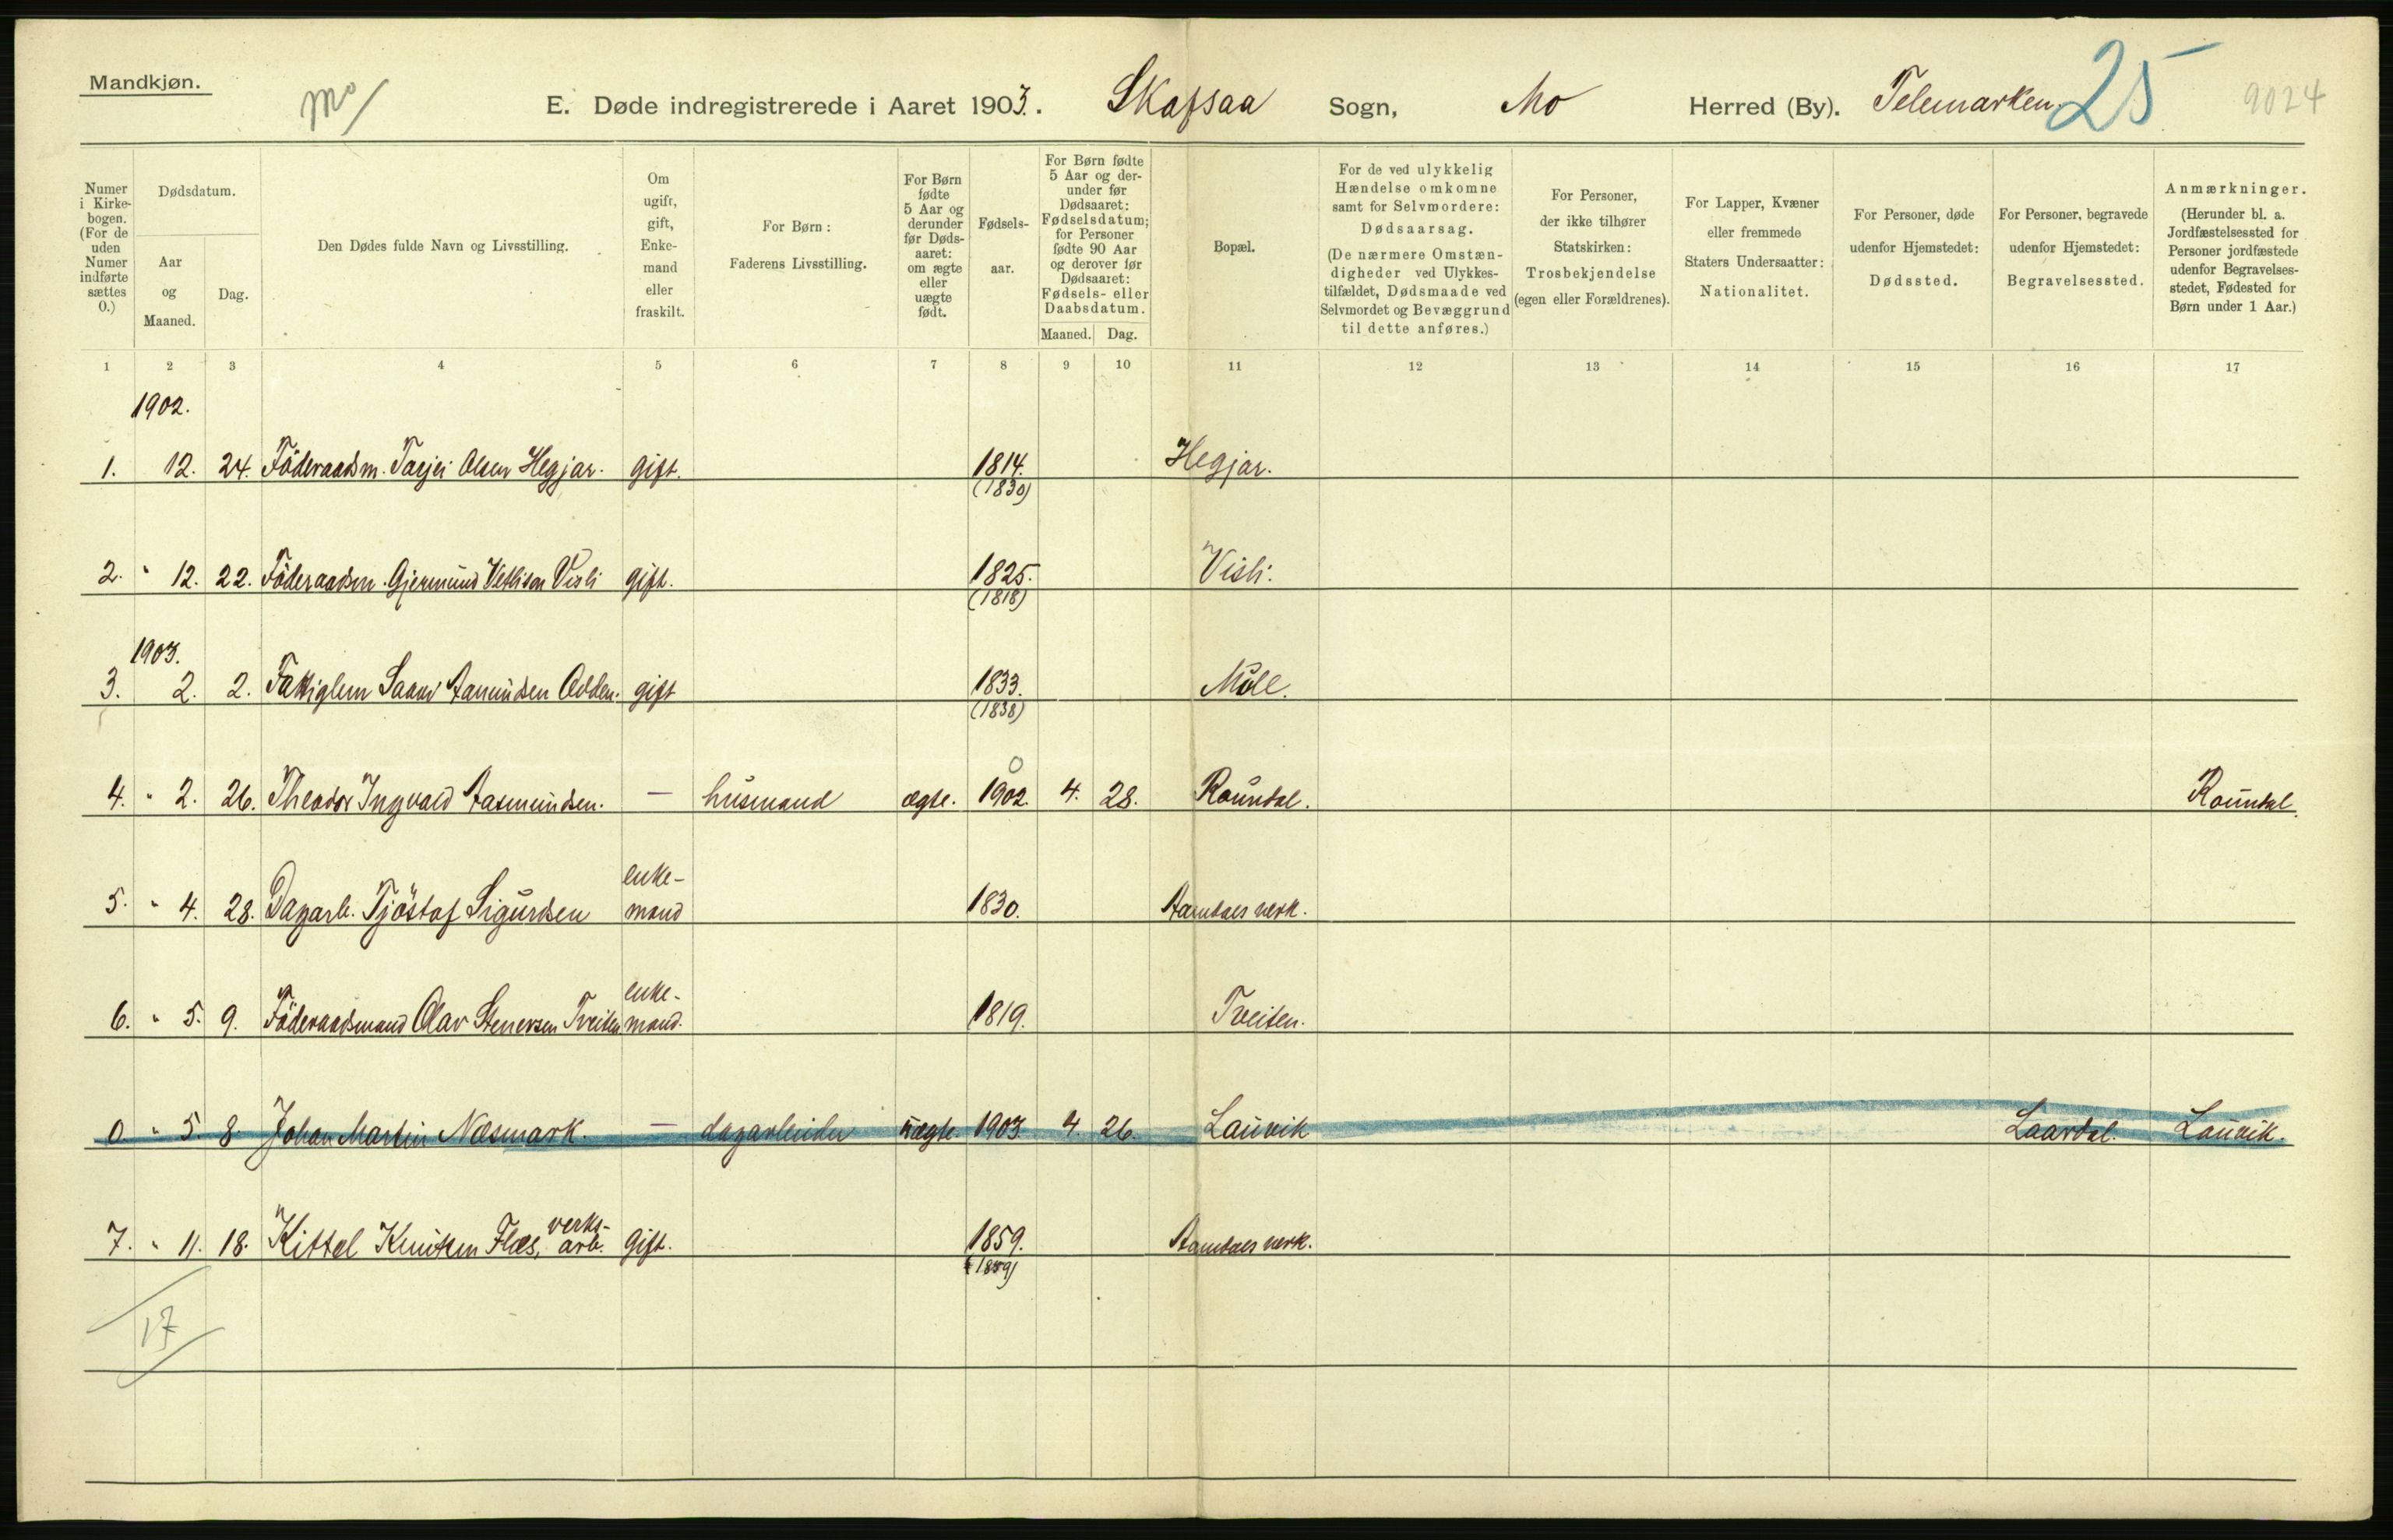 Mandkjøn.
Mo
E. Døde indregistrerede i Aaret 1903. Skafsaa Sogn, Mo Herred (By). Telemarken. 25 9024
Numer i Kirke- bogen. (For de uden Numer indførte sættes 0.)
Dødsdatum.
Aar og Maaned.
Dag.
Den Dødes fulde Navn og Livsstilling.
Om ugift, gift, Enke- mand eller fraskilt.
For Børn: Faderens Livsstilling.
For Børn fødte 5 Aar og derunder før Døds- aaret: om ægte eller uægte født.
Fødsels- aar.
For Børn fødte 5 Aar og der- under før Dødsaaret: Fødselsdatum; for Personer fødte 90 Aar og derover før Dødsaaret: Fødsels- eller Daabsdatum.
Maaned. Dag.
Bopæl.
For de ved ulykkelig Hændelse omkomne samt for Selvmordere: Dødsaarsag. (De nærmere Omstæn- digheder ved Ulykkes- tilfældet, Dødsmaade ved Selvmordet og Bevæggrund til dette anføres.)
For Personer, der ikke tilhører Statskirken: Trosbekjendelse (egen eller Forældrenes).
For Lapper, Kvæner eller fremmede Staters Undersaatter: Nationalitet.
For Personer, døde udenfor Hjemstedet: Dødssted.
For Personer, begravede udenfor Hjemstedet: Begravelsessted.
Anmærkninger. (Herunder bl. a. Jordfæstelsessted for Personer jordfæstede udenfor Begravelses- stedet, Fødested for Børn under 1 Aar.)
1 2 3 4 5 6 7 8 9 10 11 12 13 14 15 16 17
1902.
1. 12. 24. Föderaadsm. Tarjei Olsen Hegjar. gift. 1814. Hegjar.
(1830)
2. " 12. 22. Föderaadsm. Gjermund Vetlison Visli gift. 1825. Visli.
(1818)
1903.
3. 2. 2. Fattiglem Aamundsen Odden. gift 1833.
(1838)
0
4. " 2. 26. Theodor Ingvald Aasmundsen. — husmand ægte. 1902. 4. 28. Raundal. Raundal.
enke-
5. " 4. 28. Dagarb. Tjöstaf Sigurdsen mand 1830. Aamdals verk.
enke-
6. " 5. 9. Föderaadsmand Olav Stenersen Tveiten mand. 1819. Tveiten.
0. " 5. 8. Johan Martin Næsmark. — dagarbeider uægte. 1903. 4. 26. Lauvik Laardal. Lauvik.
verks-
7. " 11. 18. Kittel Knutsen Flæs, arb. gift. 1859. Aamdals verk.
(1859)
17